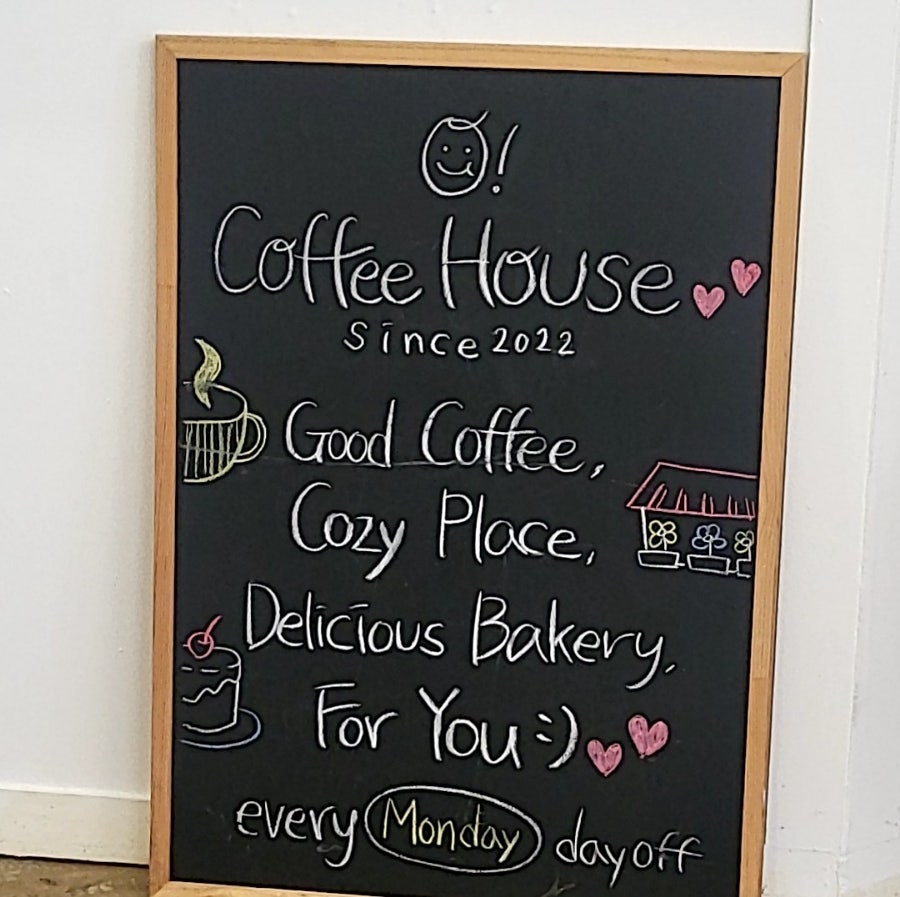 O!
Coffee House
Since 2022
Good Coffee,
Cozy Place,
Delicious Bakery,
For You :)
every Monday day off